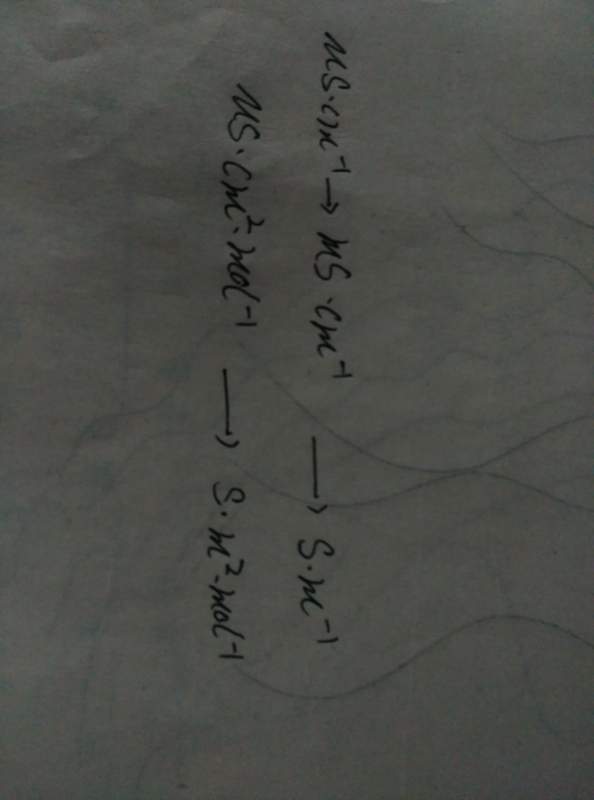 μS·cm⁻¹→ mS·cm⁻¹ → S·m⁻¹
μS·cm²·mol⁻¹ → S·m²·mol⁻¹